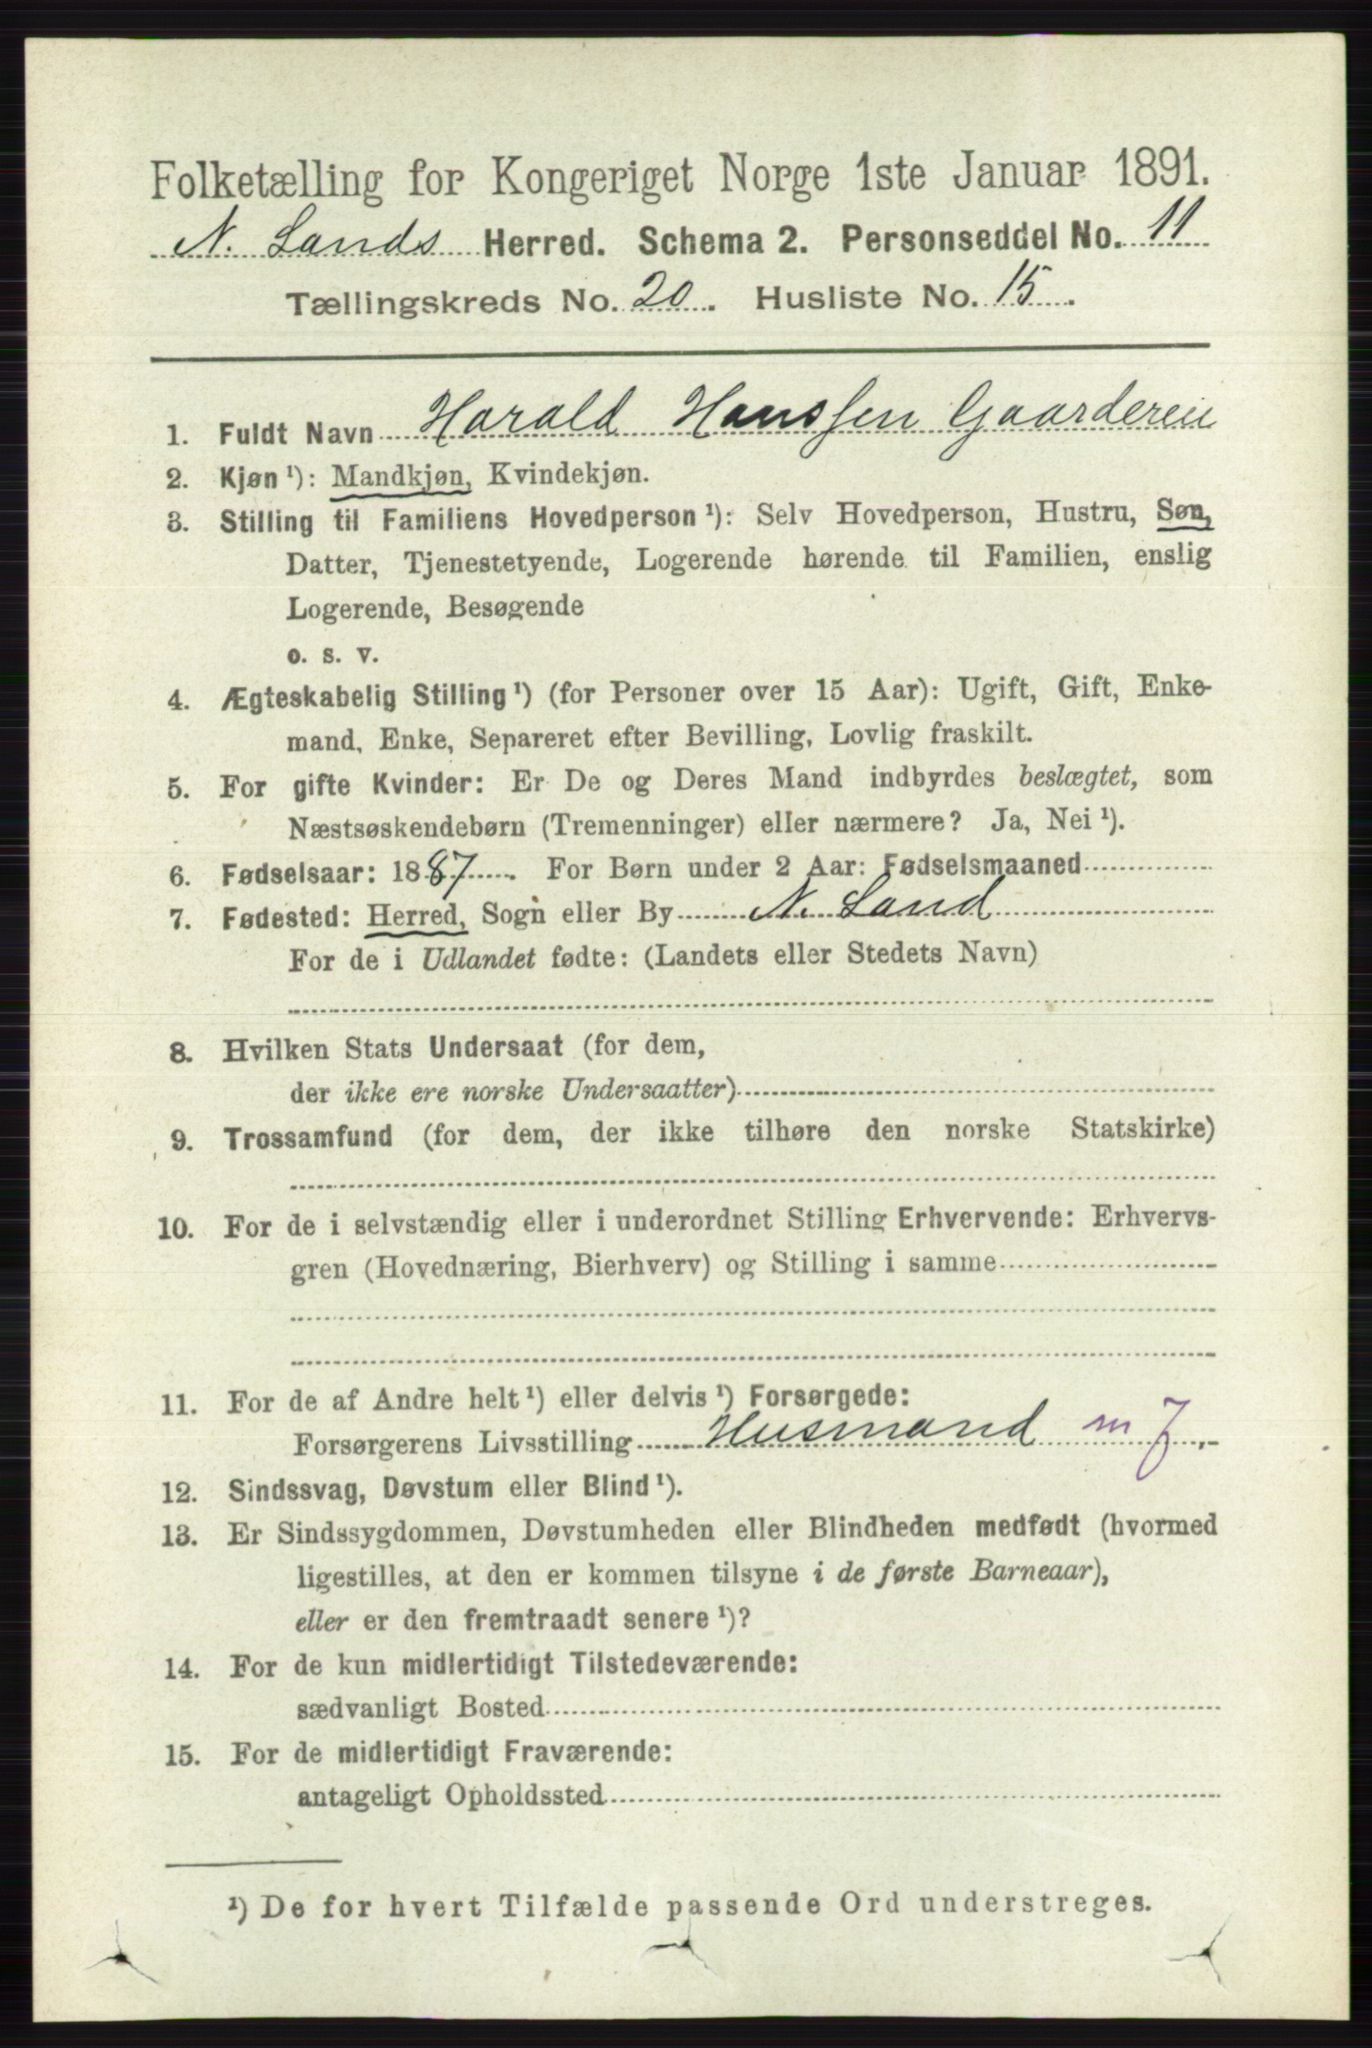 Folketælling for Kongeriget Norge 1ste Januar 1891.
N. Lands Herred. Schema 2. Personseddel No. 11
Tællingskreds No. 20. Husliste No. 15.
1. Fuldt Navn Harald Hanssen Gaardereie
2. Kjøn ¹): Mandkjøn, Kvindekjøn.
3. Stilling til Familiens Hovedperson ¹): Selv Hovedperson, Hustru, Søn,
Datter, Tjenestetyende, Logerende hørende til Familien, enslig
Logerende, Besøgende
o. s. v.
4. Ægteskabelig Stilling ¹) (for Personer over 15 Aar): Ugift, Gift, Enke-
mand, Enke, Separeret efter Bevilling, Lovlig fraskilt.
5. For gifte Kvinder: Er De og Deres Mand indbyrdes beslægtet, som
Næstsøskendebørn (Tremenninger) eller nærmere? Ja, Nei ¹).
6. Fødselsaar: 1887. For Børn under 2 Aar: Fødselsmaaned
7. Fødested: Herred, Sogn eller By N. Land
For de i Udlandet fødte: (Landets eller Stedets Navn)
8. Hvilken Stats Undersaat (for dem,
der ikke ere norske Undersaatter)
9. Trossamfund (for dem, der ikke tilhøre den norske Statskirke)
10. For de i selvstændig eller i underordnet Stilling Erhvervende: Erhvervs-
gren (Hovednæring, Bierhverv) og Stilling i samme
11. For de af Andre helt ¹) eller delvis ¹) Forsørgede:
Forsørgerens Livsstilling Husmand m J.
12. Sindssvag, Døvstum eller Blind ¹).
13. Er Sindssygdommen, Døvstumheden eller Blindheden medfødt (hvormed
ligestilles, at den er kommen tilsyne i de første Barneaar),
eller er den fremtraadt senere ¹)?
14. For de kun midlertidigt Tilstedeværende:
sædvanligt Bosted
15. For de midlertidigt Fraværende:
antageligt Opholdssted
¹) De for hvert Tilfælde passende Ord understreges.